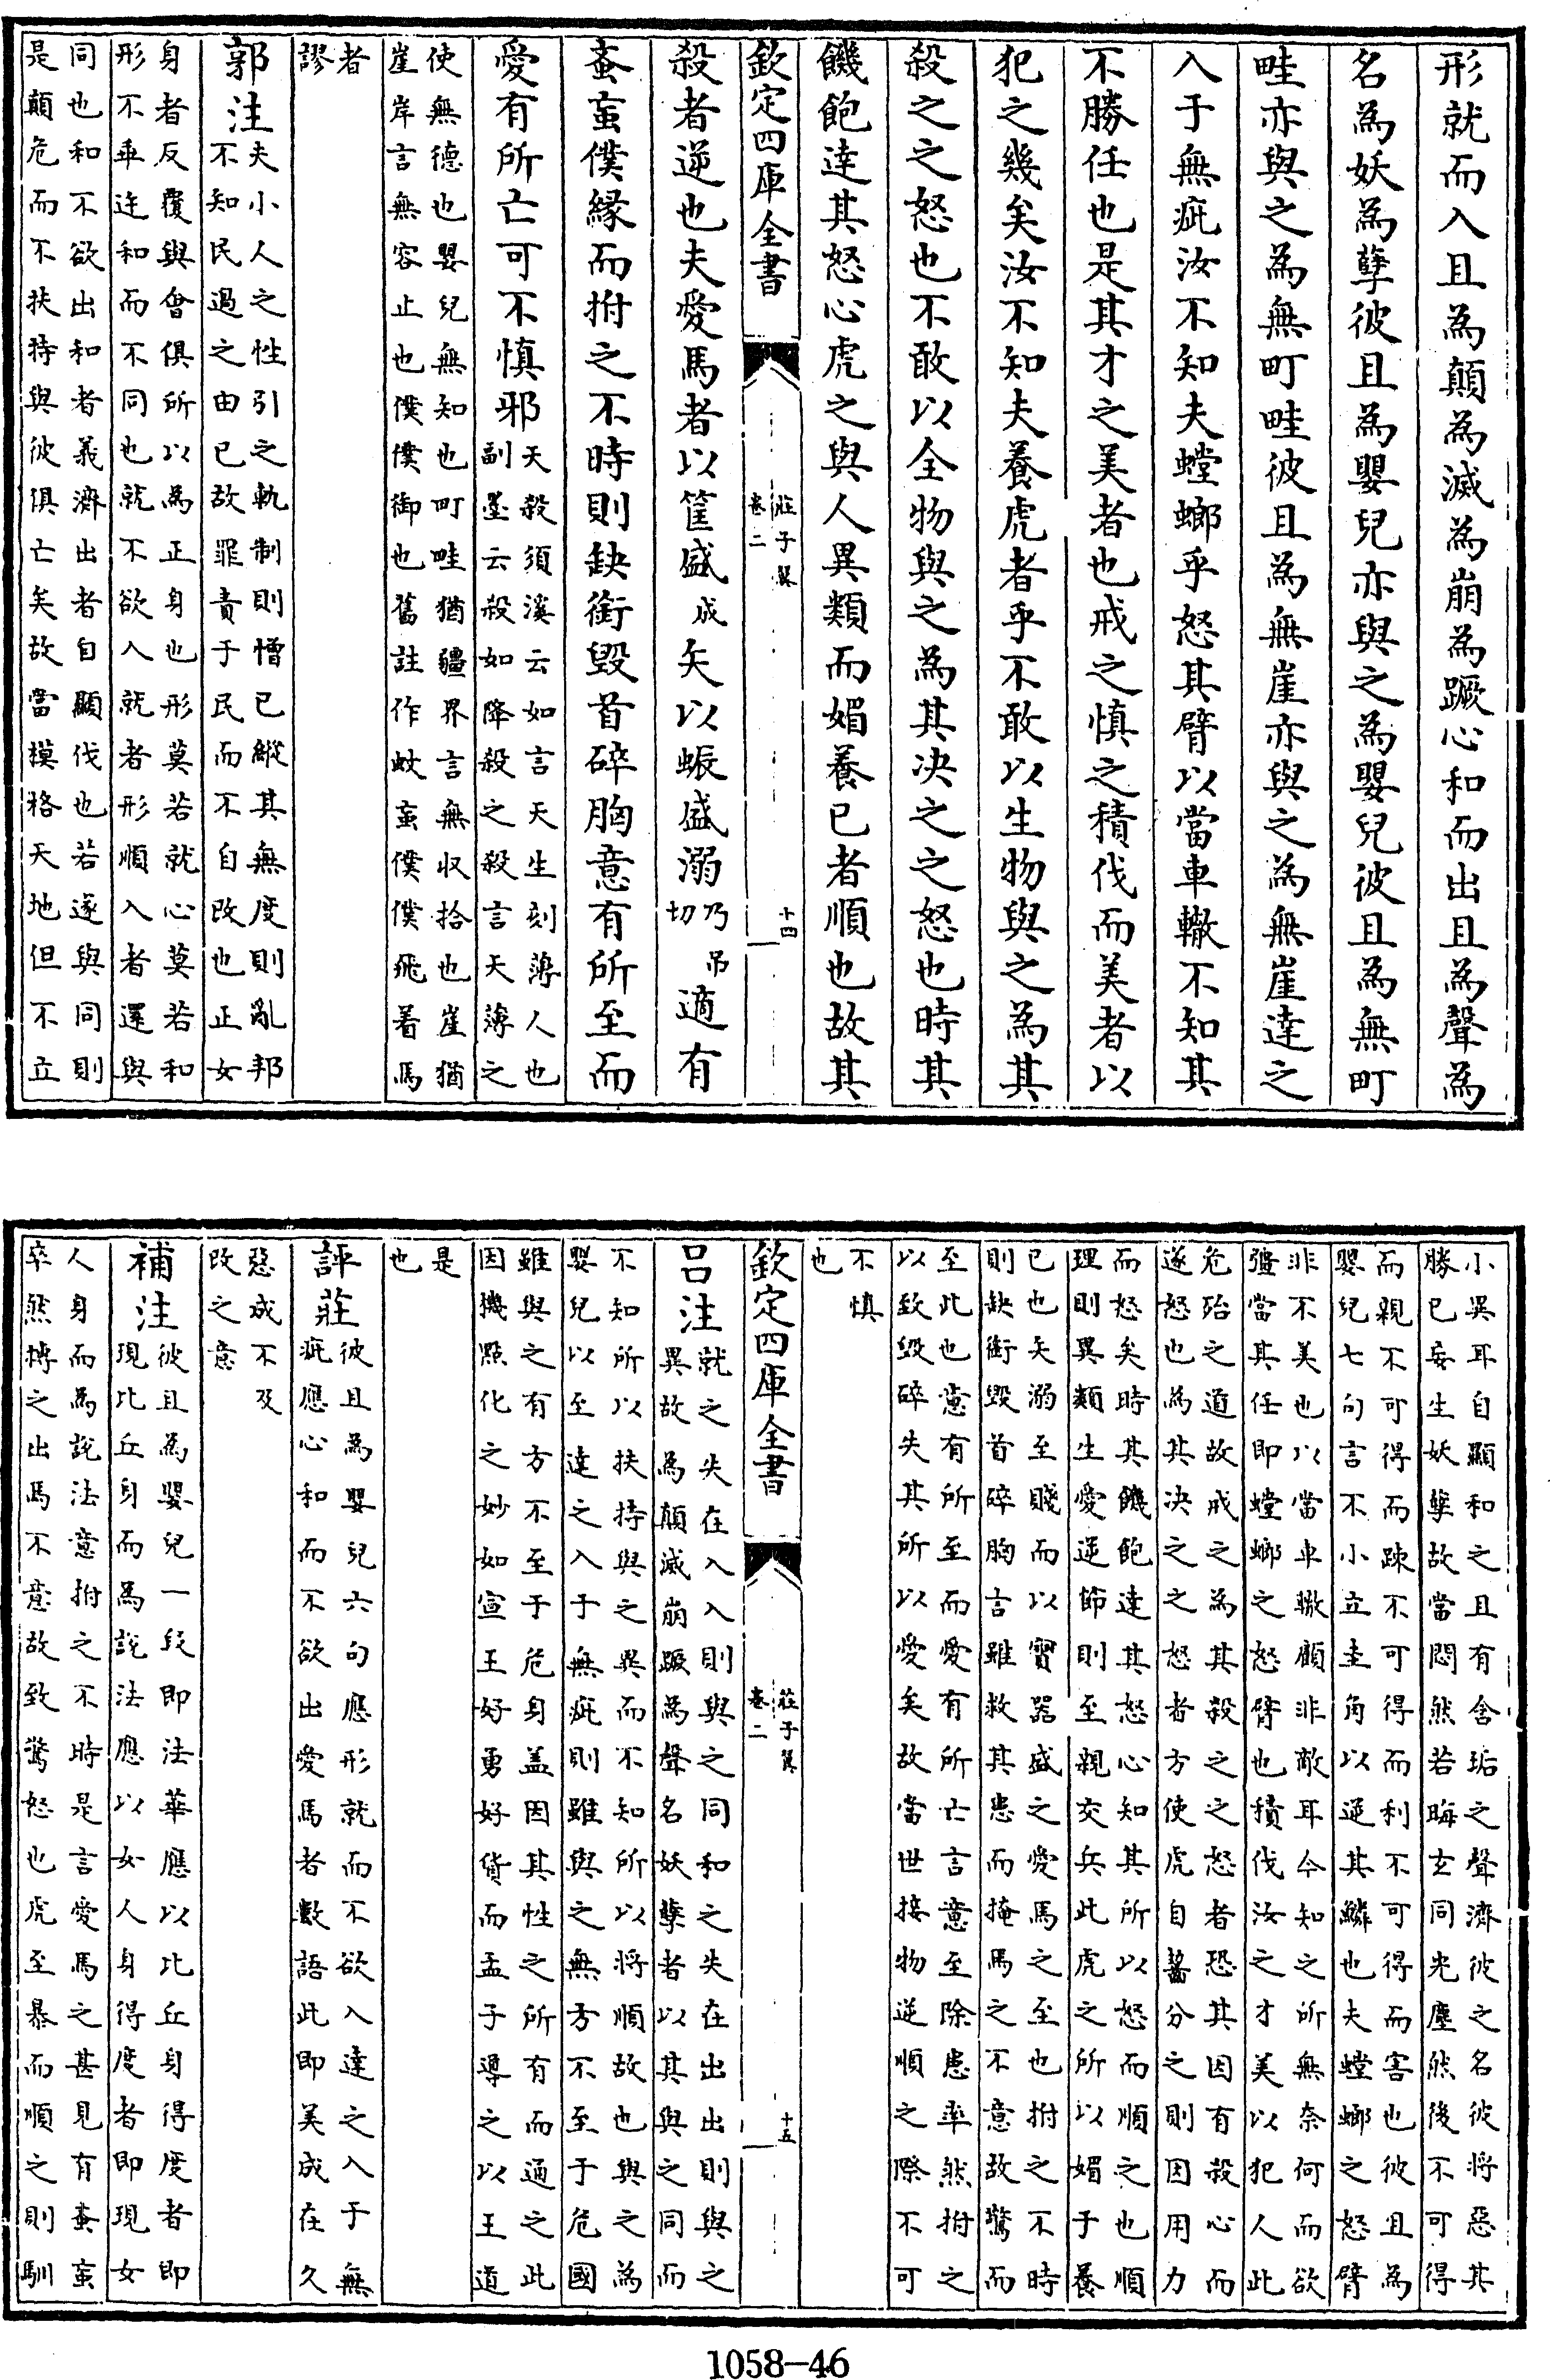 形就而入且為顛為滅為崩為蹶心和而出且為聲為
名為妖為孽彼且為嬰兒亦與之為嬰兒彼且為無町
畦亦與之為無町畦彼且為無崖亦與之為無崖達之
入于無疵汝不知夫螳螂乎怒其臂以當車轍不知其
不勝任也是其才之美者也戒之慎之積伐而美者以
犯之幾矣汝不知夫養虎者乎不敢以生物與之為其
殺之之怒也不敢以全物與之為其决之之怒也時其
饑飽達其怒心虎之與人異類而媚養已者順也故其
欽定四庫全書
莊子翼
卷二
十四
殺者逆也夫愛馬者以筐盛成矢以蜄盛溺乃吊切適有
蚉䖟僕縁而拊之不時則缺銜毀首碎胸意有所至而
愛有所亡可不慎邪
天殺須溪云如言天生刻薄人也
副墨云殺如降殺之殺言天薄之
使無德也嬰兒無知也町畦猶疆界言無収拾也崖猶
崖岸言無容止也僕僕御也舊註作蚊䖟僕僕飛着馬
者
謬
郭注
夫小人之性引之軌制則憎已縱其無度則亂邦
不知民過之由已故罪責于民而不自改也正女
身者反覆與會俱所以為正身也形莫若就心莫若和
形不乖迕和而不同也就不欲入就者形順入者還與
同也和不欲出和者義濟出者自顯伐也若遂與同則
是顛危而不扶持與彼俱亡矣故當模格天地但不立
小異耳自顯和之且有含垢之聲濟彼之名彼將惡其
勝已妄生妖孽故當悶然若晦玄同光塵然後不可得
而親不可得而踈不可得而利不可得而害也彼且為
嬰兒七句言不小立圭角以逆其鱗也夫螳螂之怒臂
非不美也以當車轍顧非敵耳今知之所無奈何而欲
彊當其任即螳螂之怒臂也積伐汝之才美以犯人此
危殆之道故戒之為其殺之之怒者恐其因有殺心而
遂怒也為其决之之怒者方使虎自齧分之則因用力
而怒矣時其饑飽達其怒心知其所以怒而順之也順
理則異類生愛逆節則至親交兵此虎之所以媚于養
已也矢溺至賤而以寶器盛之愛馬之至也拊之不時
則缺銜毀首碎胸言雖救其患而掩馬之不意故驚而
至此也意有所至而愛有所亡言意至除患率然拊之
以致毀碎失其所以愛矣故當世接物逆順之際不可
不慎
也
欽定四庫全書
莊子翼
卷二
十五
吕注
就之失在入入則與之同和之失在出出則與之
異故為顛滅崩蹶為聲名妖孽者以其與之同而
不知所以扶持與之異而不知所以将順故也與之為
嬰兒以至達之入于無疵則雖與之無方不至于危國
雖與之有方不至于危身盖因其性之所有而通之此
因機點化之妙如宣王好勇好貨而孟子導之以王道
是
也
評莊
彼且為嬰兒六句應形就而不欲入達之入于無
疵應心和而不欲出愛馬者數語此即美成在久
惡成不及
改之意
補注
彼且為嬰兒一段即法華應以比丘身得度者即
現比丘身而為說法應以女人身得度者即現女
人身而為說法意拊之不時是言愛馬之甚見有蚉䖟
卒然搏之出馬不意故致驚怒也虎至暴而順之則馴
1058-46